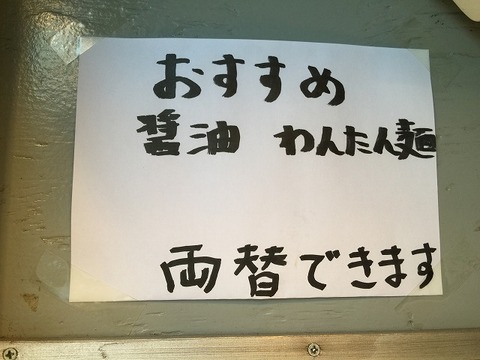 おすすめ
醤油 わんたん麺
両替できます